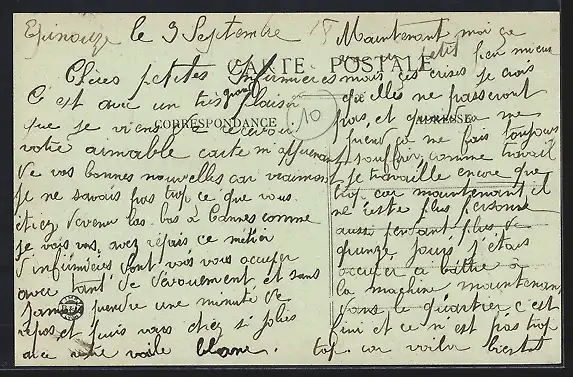 Epinouze le 3 Septembre 18
CARTE POSTALE
CORRESPONDANCE
ADRESSE
10
Chères petites Infirmières
C'est avec un très grand plaisir
que je viens de recevoir
votre aimable carte m'apprenant
de vos bonnes nouvelles car vraiment
je ne savais pas trop ce que vous
étiez devenu las bas à Cannes comme
je vois vous avez repris ce métier
d'infirmières dont vous vous occuper
avec tant de dévouement, et sans
jamais prendre une minute de
repos, et puis vous êtes si jolies
avec votre voile blanc.
Maintenant moi je
suis un petit peu mieux
mais ces crises je crois
qu'elles ne passeront
pas, et quand ça me
prend ça me fais toujours
souffrir, comme travail
je travaille encore que
trop car maintenant il
ne reste plus personne
aussi pendant plus de
quinze jours j'étais
occuper a battre à
la machine maintenant
dans le quartier c'est
fini et ce n'est pas trop
top car voila bientot